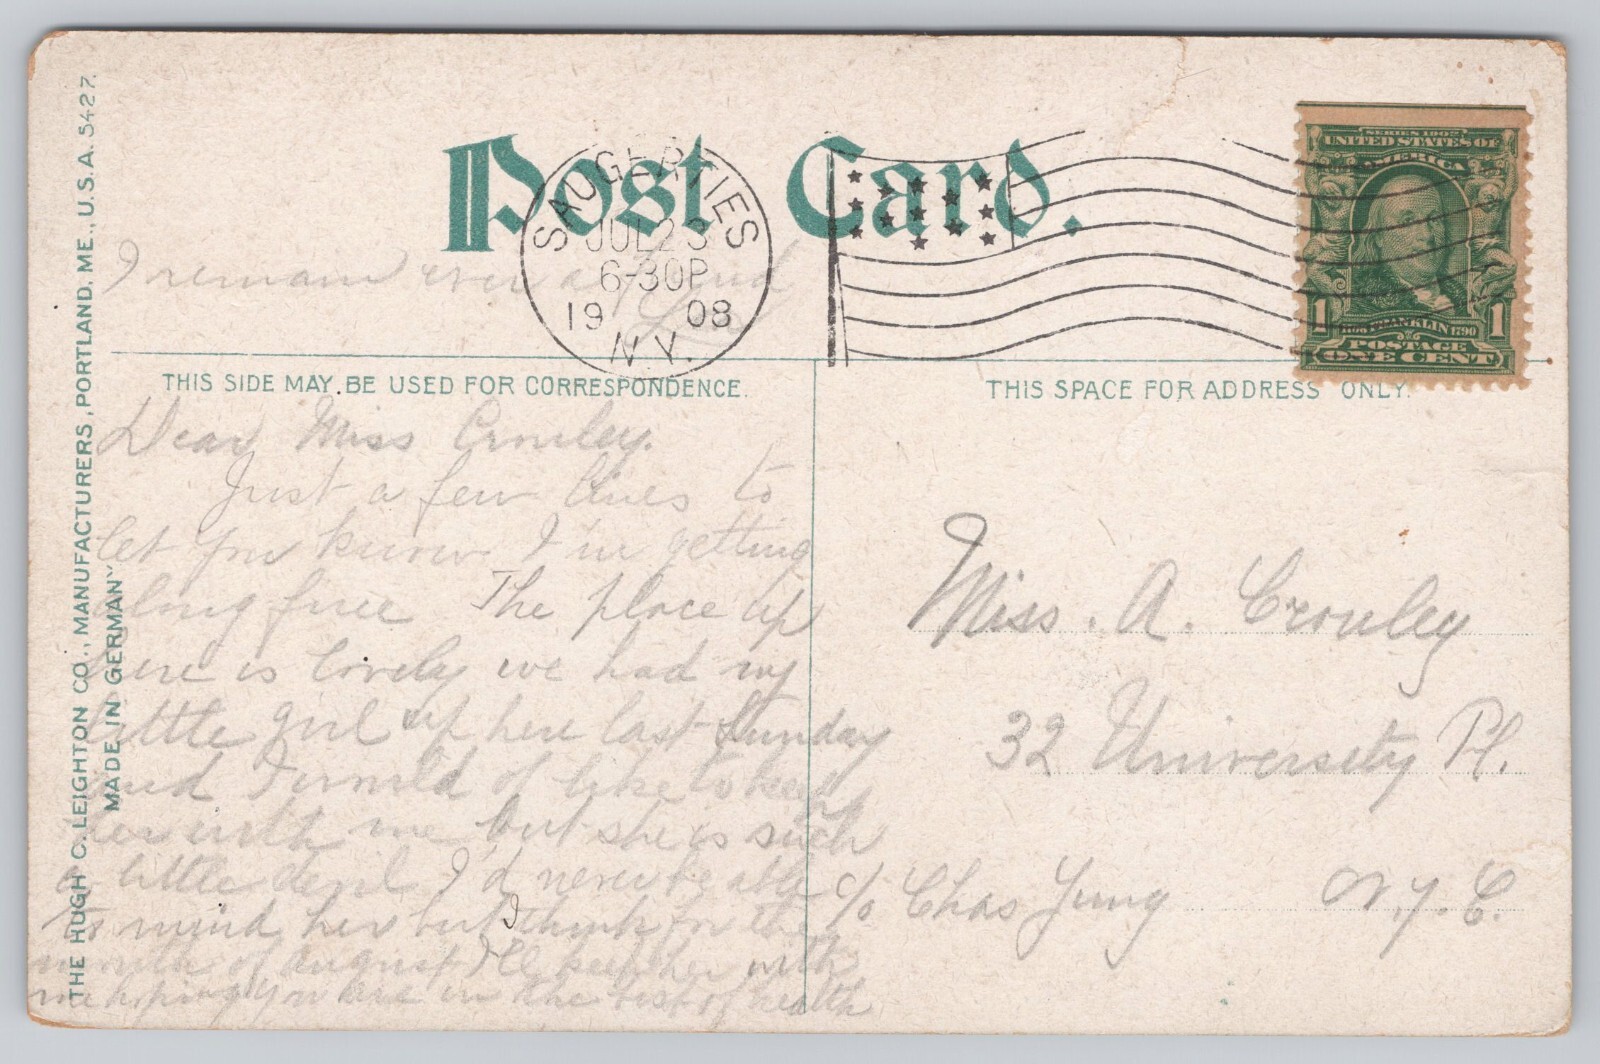 THE HUGH C. LEIGHTON CO., MANUFACTURERS, PORTLAND, ME., U.S.A. 5427.
MADE IN GERMANY
Post Card.
SAUGERTIES
JUL 23
6-30P
1908
N.Y.
SERIES 1902
UNITED STATES OF
AMERICA
1 1706 FRANKLIN 1790 1
POSTAGE
ONE CENT
THIS SIDE MAY BE USED FOR CORRESPONDENCE.
THIS SPACE FOR ADDRESS ONLY.
Dear Miss Cronley.
Just a few lines to
let you know I'm getting
along fine The place up
here is lovely we had my
little girl up here last Sunday
and I would of like to keep
her with me but she is such
a little devil I'd never be able
to mind her but I think for the
month of august I'll keep her with
me hoping you are in the best of health
I remain ever a friend
Miss. A. Cronley
32 University Pl.
c/o Chas Jung N.Y.C.